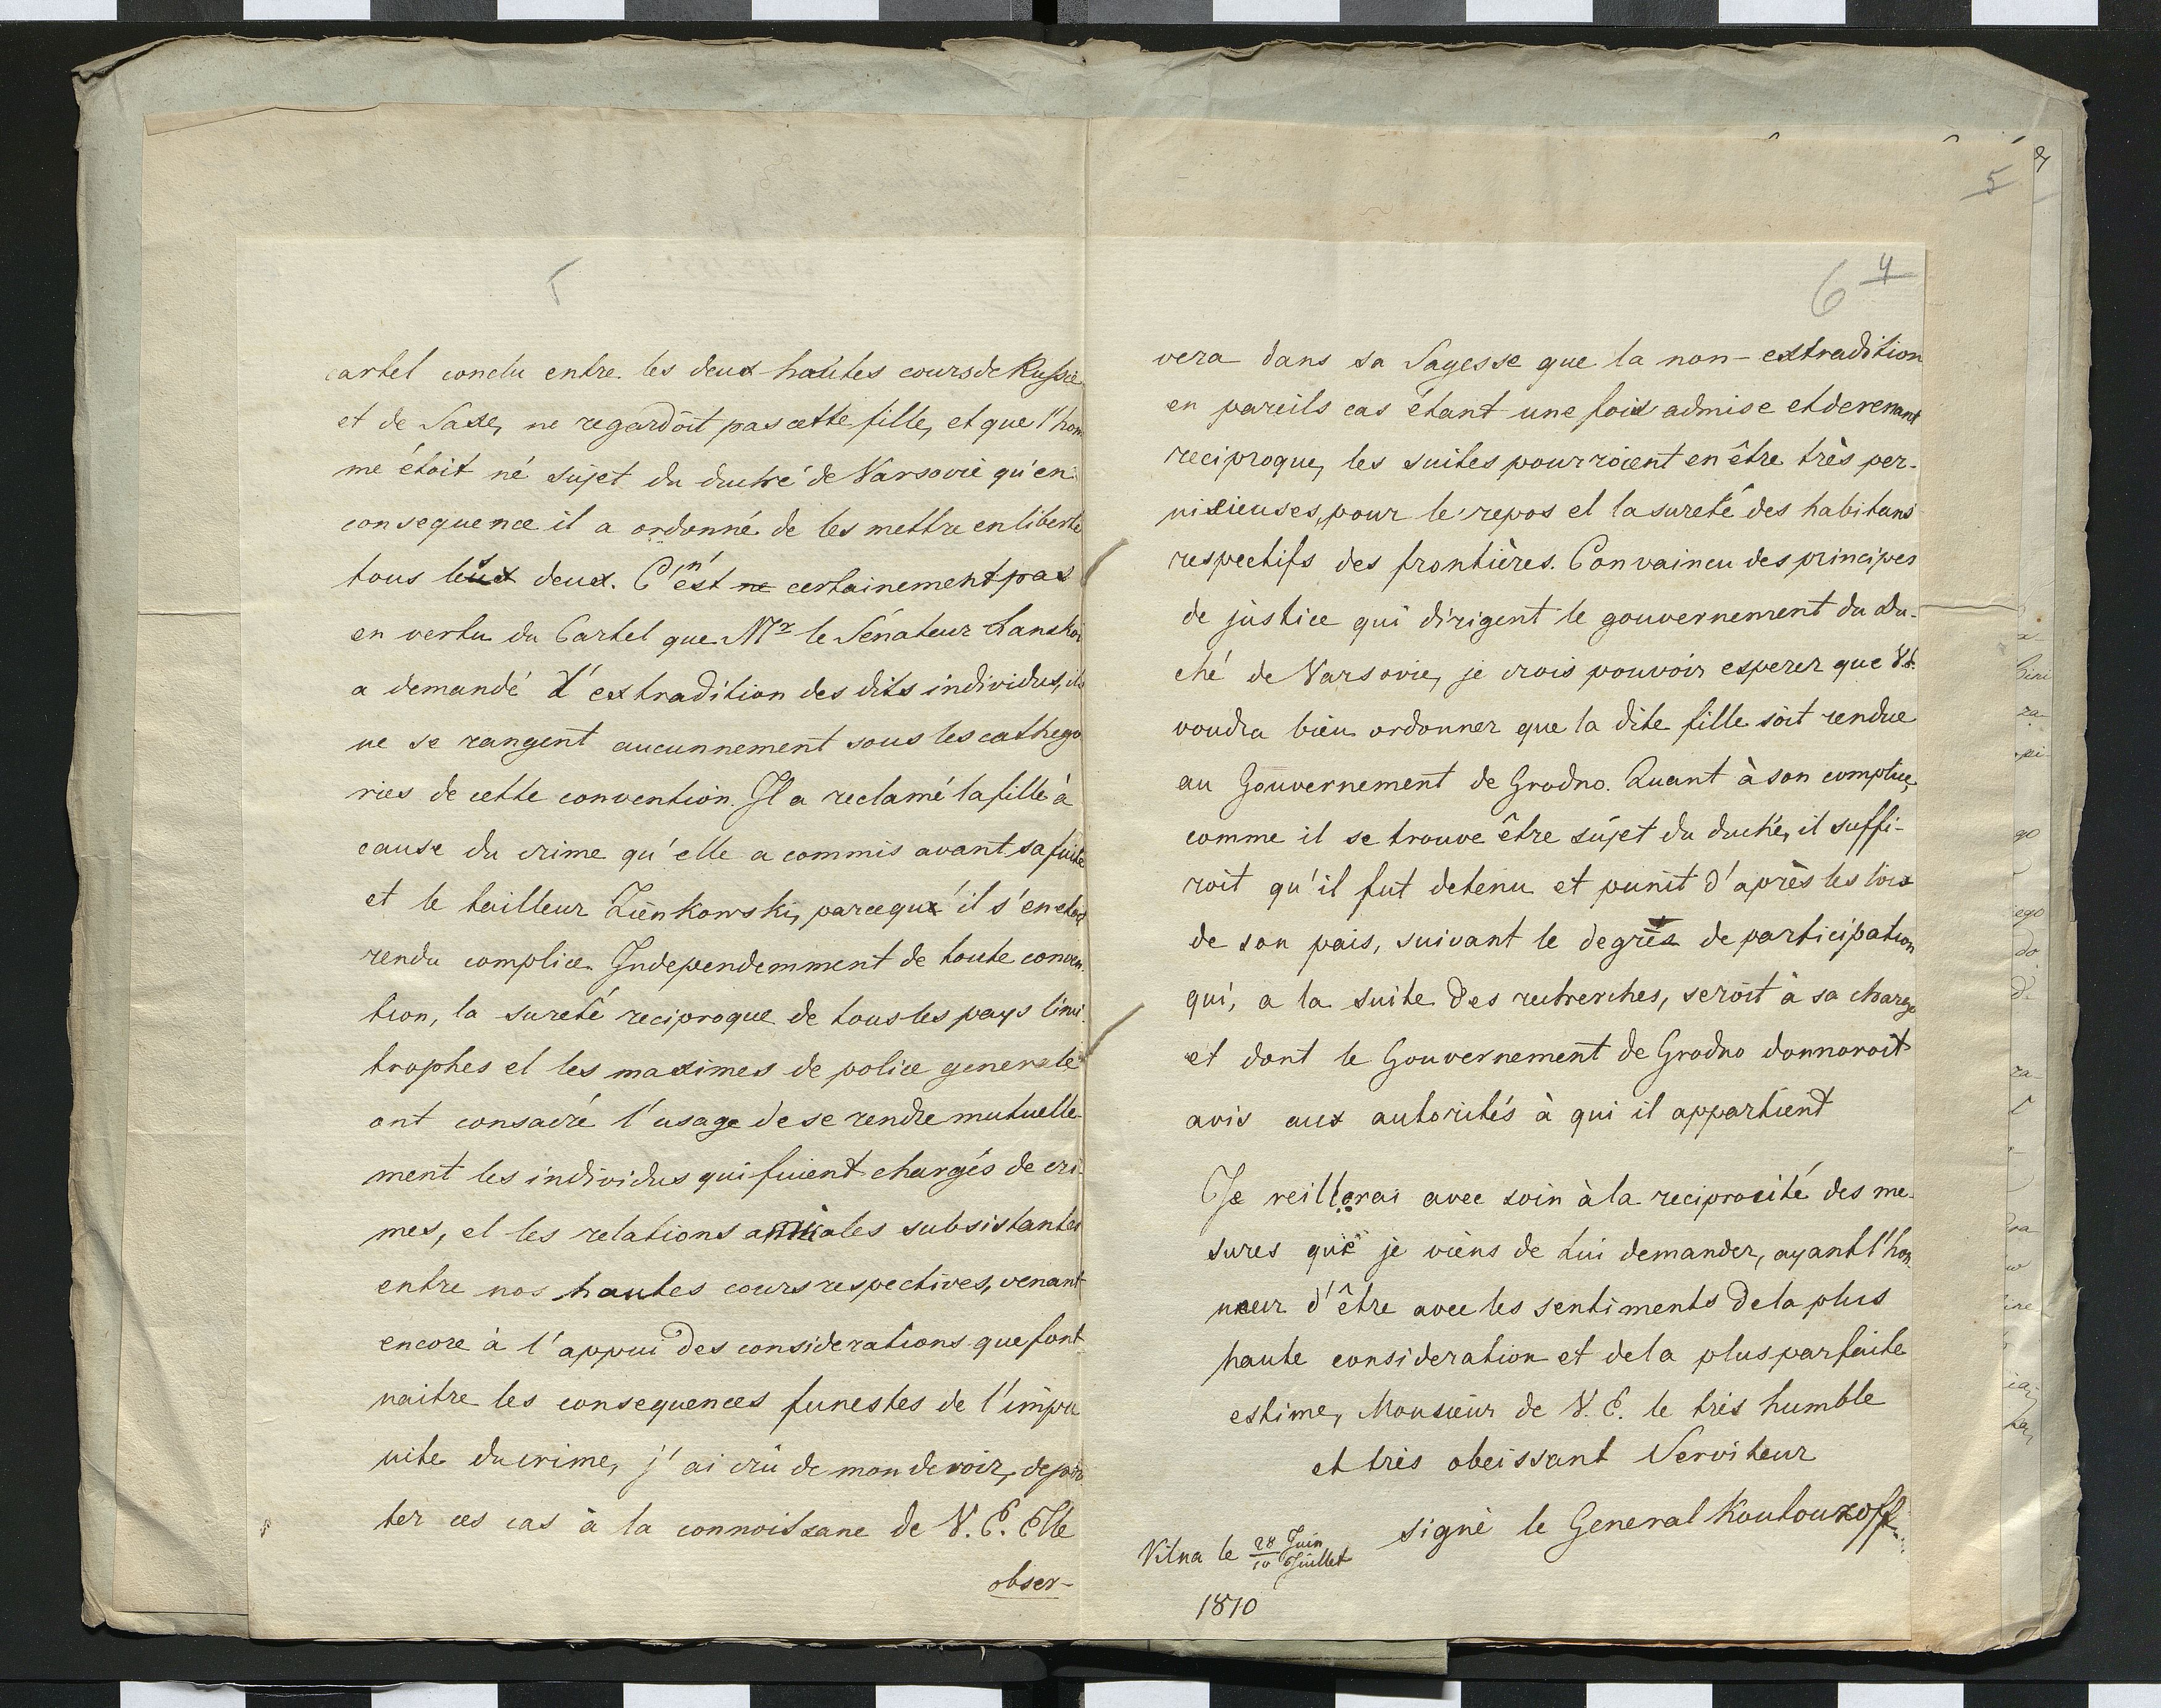 cartel conclu entre les deux hautes cours de Russie
et de Saxe, ne regardoit pas cette fille, et que l'hom
me étoit né sujet du duché de Varsovie qu'en
consequence il a ordonné de les mettre en liberté
tous les deux. C'n'est ne certainement pas
en vertu du Cartel que Mr le Sénateur Lanskoi
a demandé l'extradition des dits individus, ils
ne se rangent aucunnement sous les cathego
ries de cette convention. Il a reclamé la fille à
cause du crime qu'elle a commis avant sa fuite
et le tailleur Zienkowski, parcequ'il s'en etoit
rendu complice. Independemment de toute conven-
tion, la sureté reciproque de tous les pays limi-
trophes et les maximes de police generale
ont consacré l'usage de se rendre mutuelle-
ment les individus qui fuient chargés de cri-
mes, et les relations amicales subsistantes
entre nos hautes cours respectives, venant
encore à l'appui des considerations que font
naitre les consequences funestes de l'impu
nite du crime, j'ai crû de mon devoir, de por-
ter ces cas à la connoissane de V. E. Elle
obser-
5
6 4
vera dans sa Sagesse que la non-extradition
en pareils cas étant une fois admise et devenant
reciproque, les suites pourroient en être très per-
nicieuses, pour le repos et la sureté des habitans
respectifs des frontières. Convaincu des principes
de justice qui dirigent le gouvernement du Du-
ché de Varsovie, je crois pouvoir esperer que V.E.
voudra bien ordonner que la dite fille soit rendue
au Gouvernement de Grodno. Quant à son complice,
comme il se trouve être sujet du duché, il suffi-
roit qu'il fut detenu et punit d'après les loix
de son pais, suivant le degrès de participation
qui, a la suite des recherches, seroit à sa charge
et dont le Gouvernement de Grodno donneroit
avis aux autorités à qui il appartient
Je veillerai avec soin à la reciprocité des me-
sures que je viens de Lui demander, ayant l'hon-
neur d'être avec les sentiments de la plus
haute consideration et de la plus parfaite
estime, Monsieur de V. E. le très humble
et très obeissant Serviteur
signé le General Koutouzoff
Vilna le 28 Juin / 10 Juillet
1810